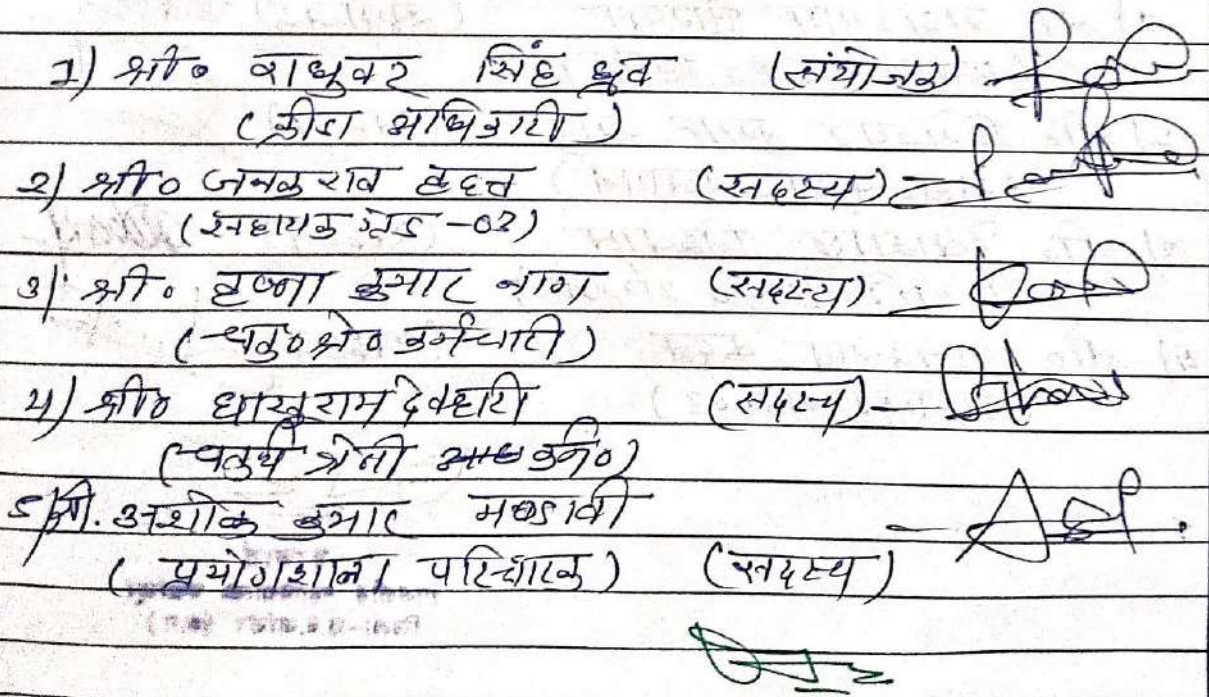 1) श्री० राघुवर सिंह ध्रुव (संयोजक)
(क्रीडा अधिकारी)
2) श्री० जनकराव (सदस्य)
(सहायक ग्रेड -03)
3) श्री० कृष्णा कुमार नाग (सदस्य)
(चतु० श्रे० कर्मचारी)
4) श्री० घासुराम देवहारी (सदस्य)
(चतुर्थ श्रेनी कर्म०)
5) श्री. अशोक कुमार मण्डावी
(प्रयोगशाला परिचारक) (सदस्य)